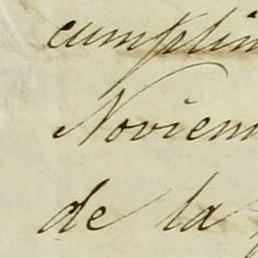 cumplim
Noviem
de la